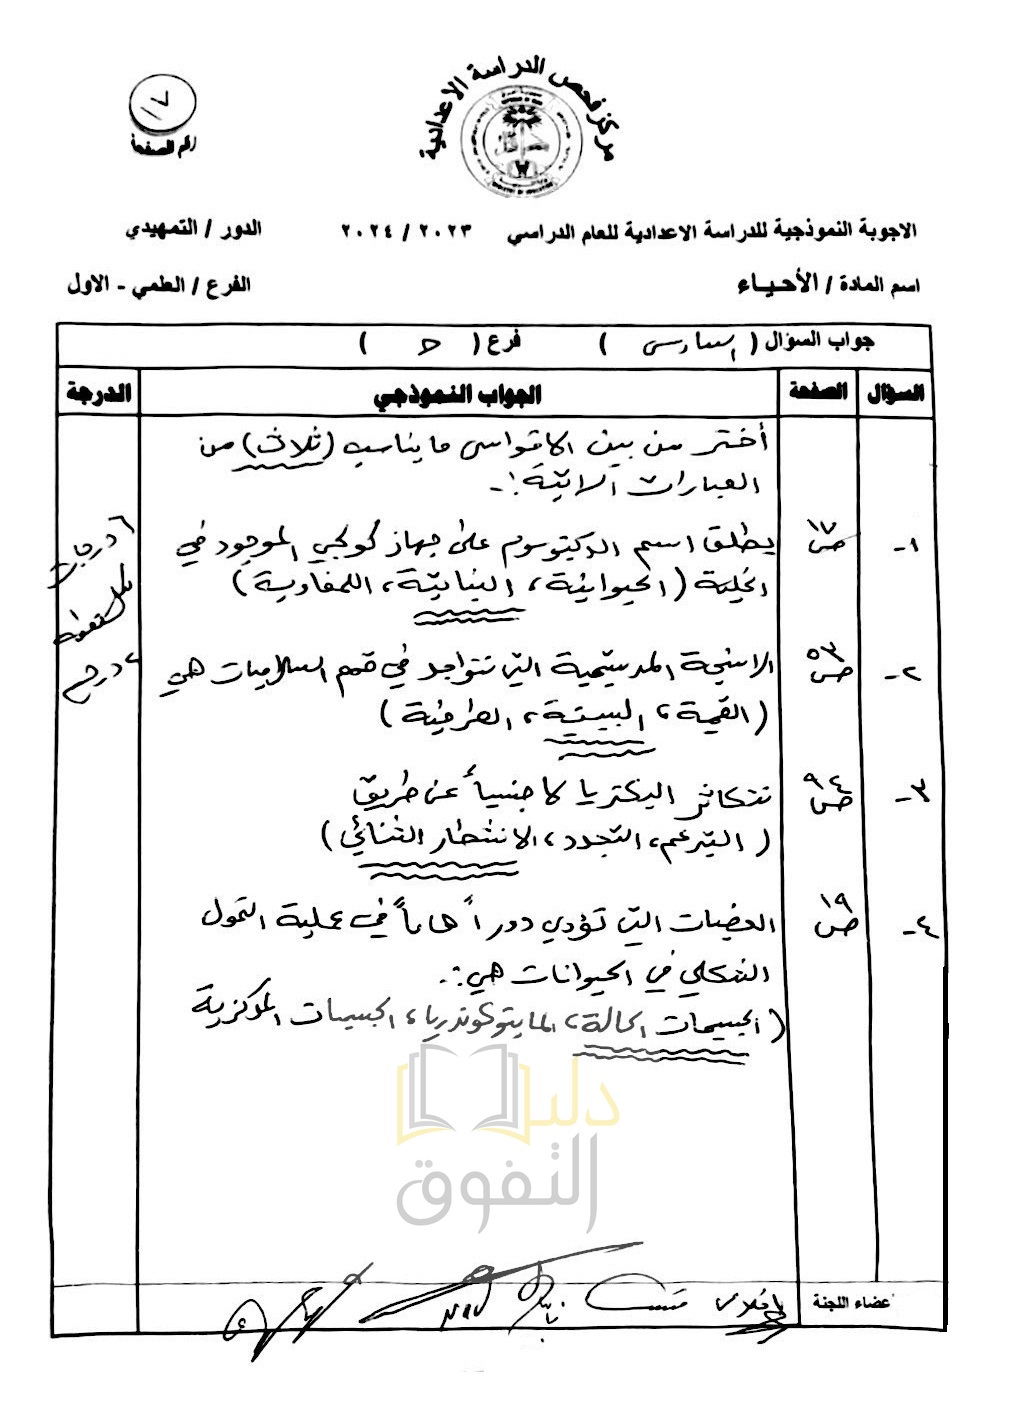 مركز فحص الدراسة الاعدادية
١٧
رقم الصفحة
الاجوبة النموذجية للدراسة الاعدادية للعام الدراسي ٢٠٢٣ / ٢٠٢٤ الدور / التمهيدي
اسم المادة / الأحياء الفرع / العلمي - الاول
جواب السؤال ( السادس ) فرع ( )
السؤال الصفحة الجواب النموذجي الدرجة
أختر من بين الاقواس ما يناسب (ثلاث) من
العبارات الاتية :-
١- ص١٧ يطلق اسم الدكتوسوم على جهاز كولجي الموجود في
الخلية ( الحيوانية ، النباتية ، اللمفاوية )
٦ درجات
لكل نقطة
٢ درجة
٢- ص٥٣ الانسجة المرستيمية التي تتواجد في قمم السلاميات هي
( القمية ، البينية ، الطرفية )
٣- ص٩٤ تتكاثر البكتريا لاجنسياً عن طريق
( التبرعم ، التجدد ، الانشطار الثنائي )
٤- ص١٩ العضيات التي تؤدي دوراً هاماً في عملية التحول
الشكلي في الحيوانات هي :-
( الجسيمات الحالة ، المايتوكوندريا ، الجسيمات المركزية
دليل
التفوق
أعضاء اللجنة